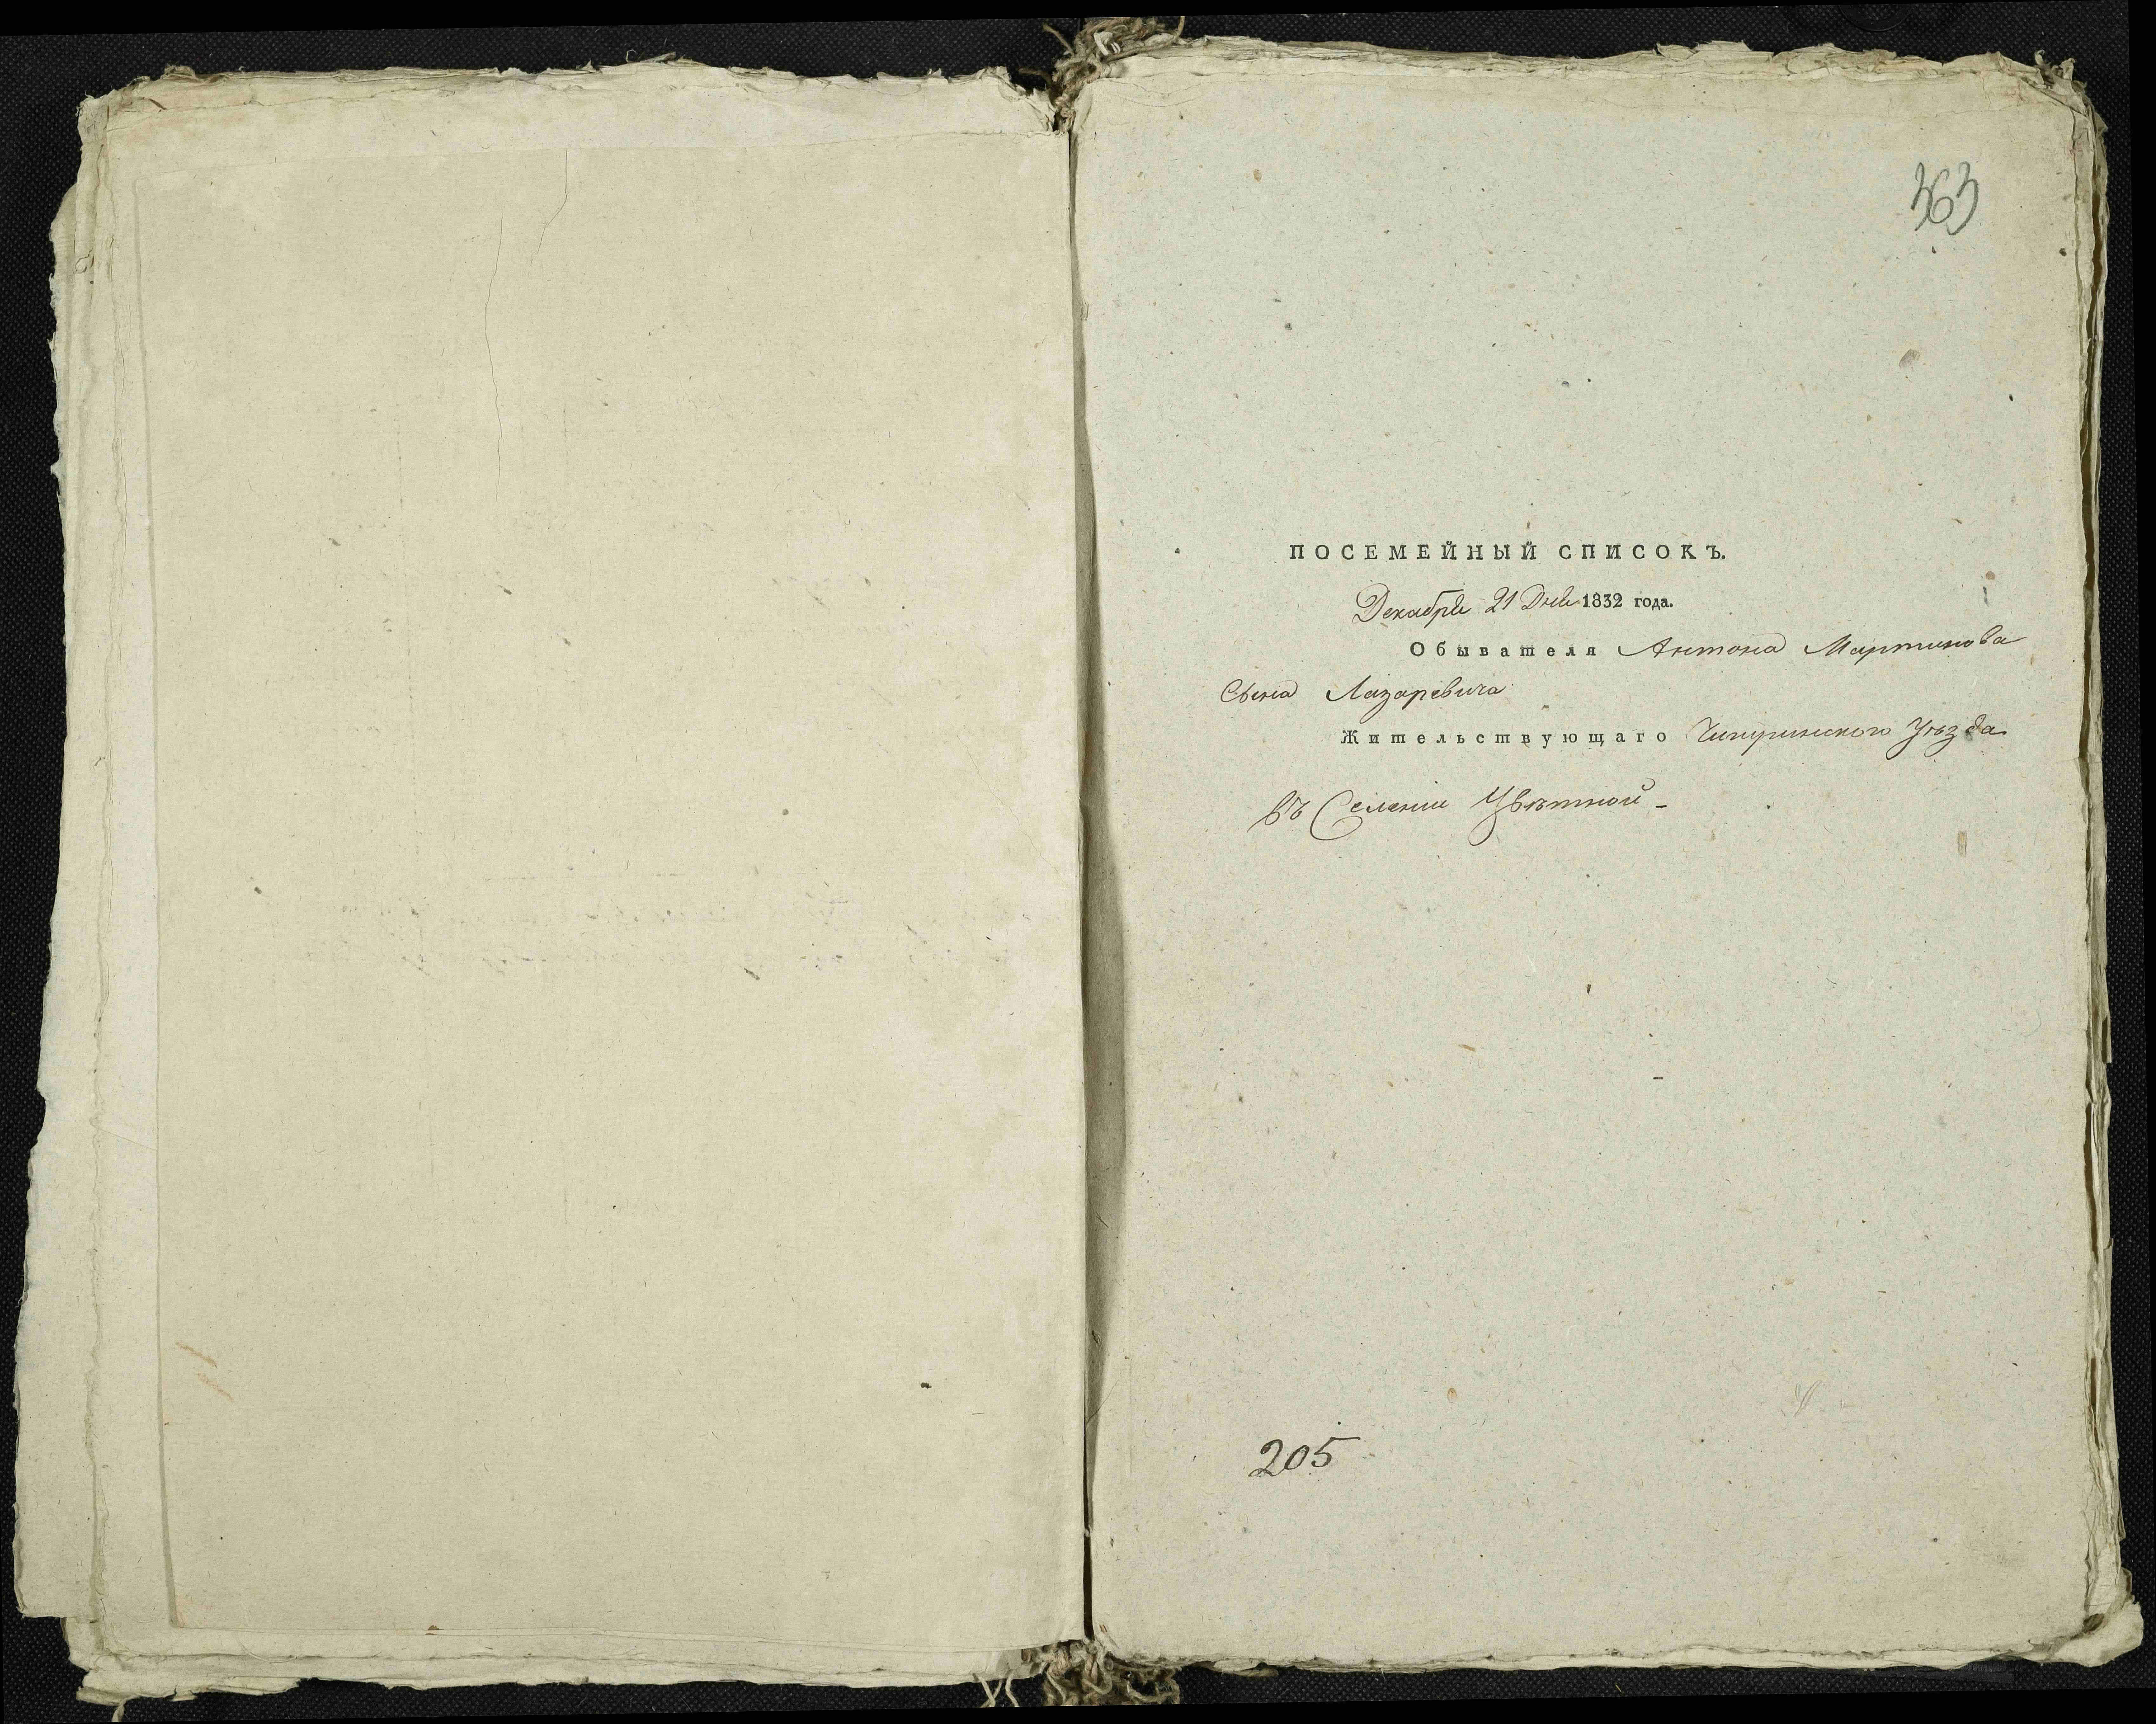 363
ПОСЕМЕЙНЫЙ СПИСОКЪ.
Декабря 21 Дня 1832 года.
Обывателя Антона Мартинова
Сына Лазаревича
Жительствующаго Чигринского Уѣзда
въ Селеніи Цвѣтной -
205